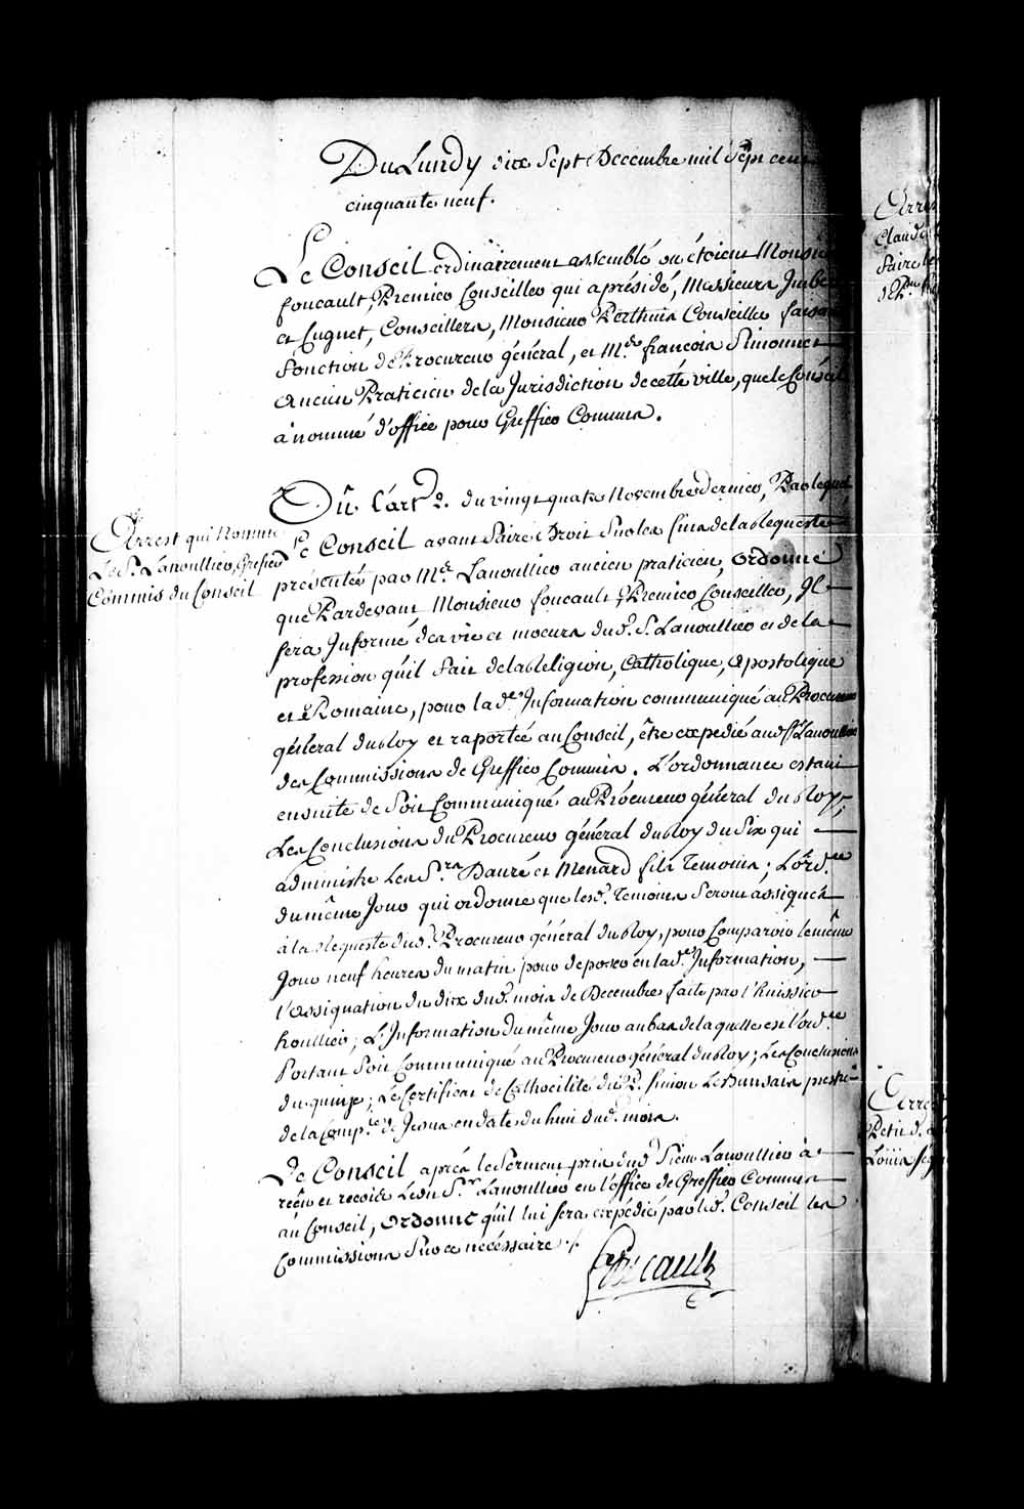 Du Lundy dix Sept Decembre mil Sept cens
cinquante neuf.
Le Conseil ordinairement assemblé ou étoient Monsieur
foucault, Premier Conseiller qui a présidé, Messieurs Imbert
et Cugnet, Conseillers, Monsieur Perthuis Conseiller faisant
fonction de Procureur général, et Me. françois Simonnet
ancien Praticien de la Jurisdiction de cette ville, que le Conseil
a nommé d'office pour Greffier Commis.
Arrest qui Nomme
Le Sr. Lanoullier, Greffier
Commis du Conseil
Vû l'arrt. du vingt quatre Novembre dernier, Par lequel
Le Conseil avant faire Droit Sur les fins de la Requeste
présentée par Me. Lanoullier ancien praticien, ordonne
que Pardevant Monsieur foucault, Premier Conseiller, Il
sera Informé des vie et moeurs dud. S. Lanoullier et de la
profession qu'il fait de la Religion, Catholique, apostolique
et Romaine, pour lade. Information communiqué au Procureur
général du Roy et raportée au Conseil, être expedié aud. S. Lanoullier
des Commissions de Greffier Commis. L'ordonnance estant
ensuite de Soit Communiqué au Procureur général du Roy,
Les Conclusions du Procureur général du Roy du Six qui
administre Les Srs. Dauré et Menard fils Temoins; L'ordce.
du même Jour qui ordonne que lesd. Temoins Seront assignés
à la Requeste dud. Procureur général du Roy, pour Comparoir le même
Jour neuf heures du matin pour déposer en lade. Information,
l'assignation du dix dud. mois de Decembre faite par l'huissier
houllier; L'Information du même Jour au bas de laquelle est l'ordce.
Portant Soit Communiqué au Procureur général du Roy; Les Conclusions
du quinze; Le Certificat de Catholicité du P. Simon prestre
de la Compie. de Jesus en date du huit dud. mois.
Le Conseil après le serment pris dud. Sieur Lanoullier a
reçu et reçoit Led. Sr. Lanoullier en l'office de Greffier Commis
au Conseil, ordonne qu'il lui sera expédié par led. Conseil les
Commissions Sur ce nécessaire ./.
foucault
Claude
faire
Petit
Loüis